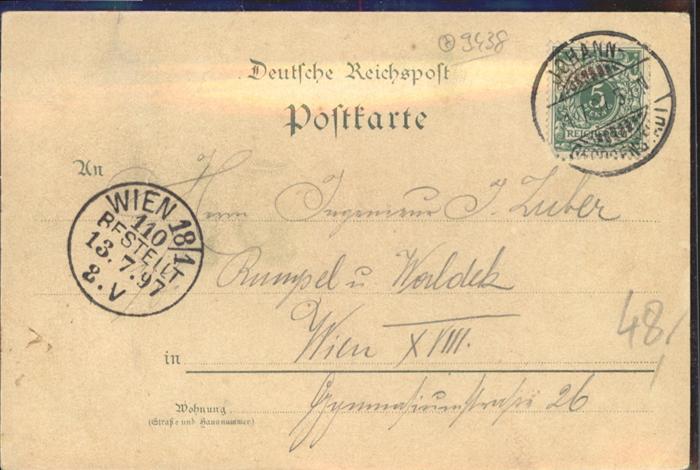 ⊗9438
Deutsche Reichspost
Postkarte
JOHANN-
5
REICHSPOST
An
WIEN 18/1
110
BESTELLT
13. 7. 97
2. V
Herrn Ingenieur J. Zuber
Rumpel u Waldek
Wien XVIII.
in
48,
Gymnasiumstraße 26
Wohnung
(Straße und Hausnummer)